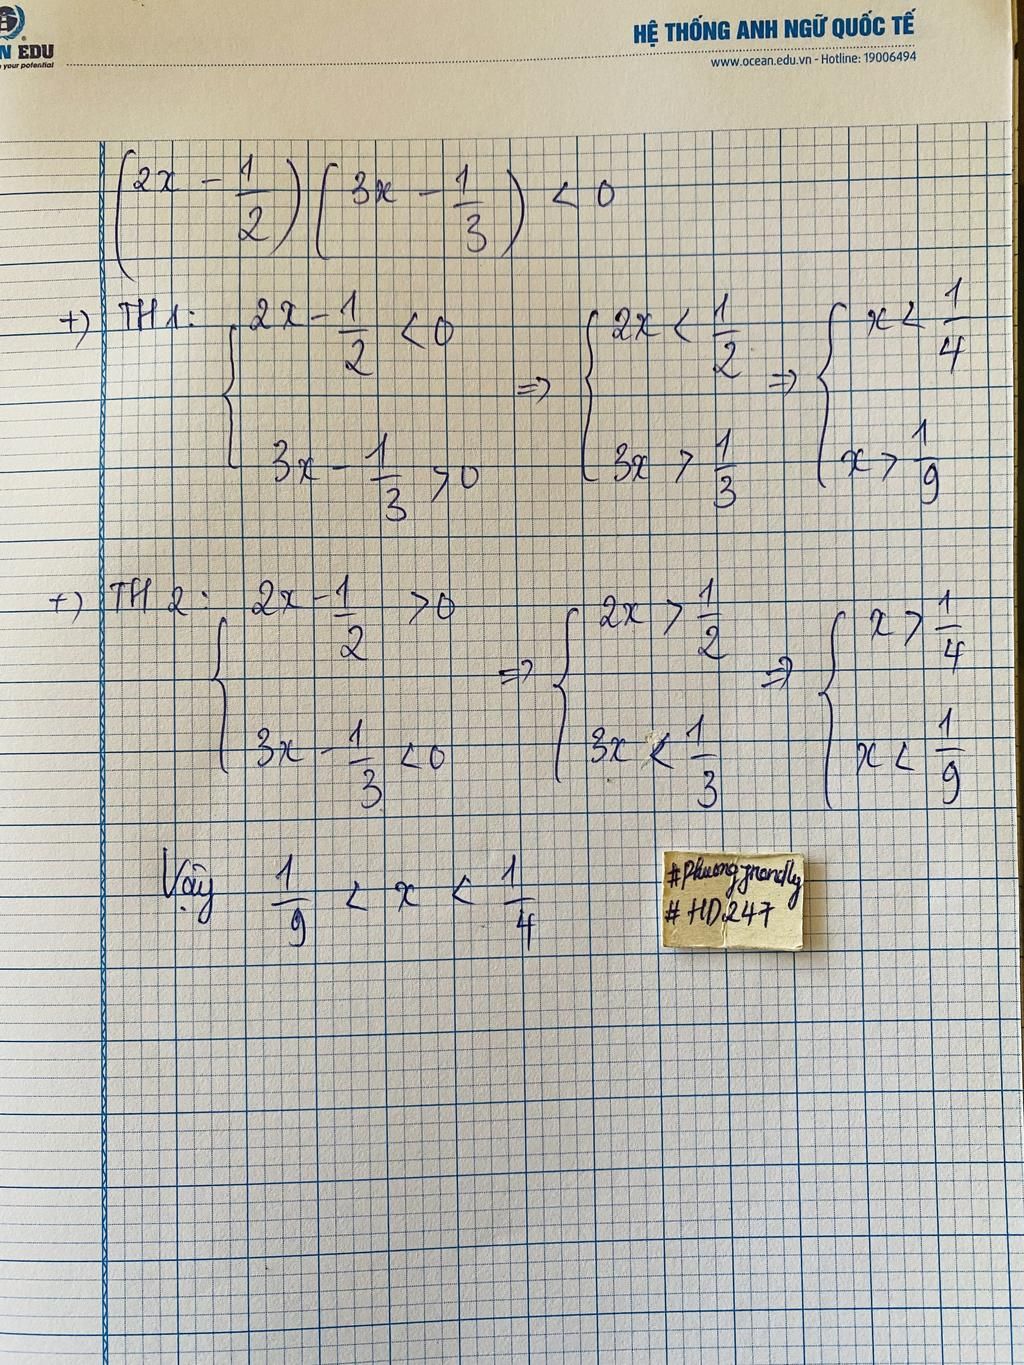 N EDU
your potential
HỆ THỐNG ANH NGỮ QUỐC TẾ
www.ocean.edu.vn - Hotline: 19006494
(2x - 1/2)(3x - 1/3) < 0
+) TH1: { 2x - 1/2 < 0 => { 2x < 1/2 => { x < 1/4
3x - 1/3 > 0 3x > 1/3 x > 1/9
+) TH2: { 2x - 1/2 > 0 => { 2x > 1/2 => { x > 1/4
3x - 1/3 < 0 3x < 1/3 x < 1/9
Vậy 1/9 < x < 1/4
# HD247